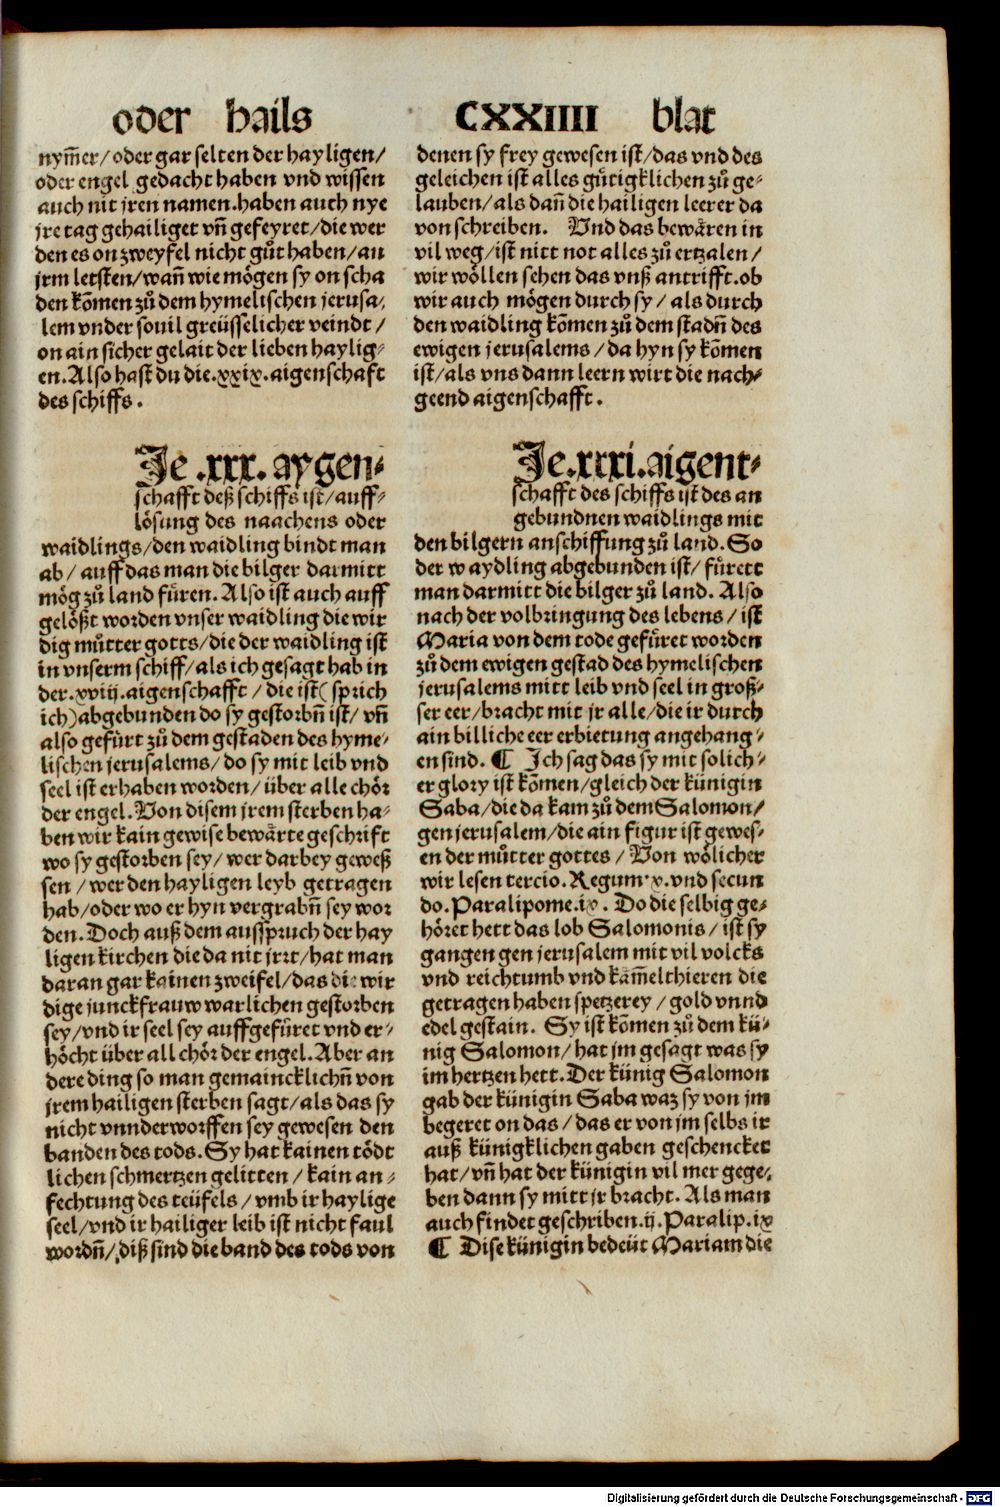 oder hails
CXXIIII blat
nym̄er/oder gar selten der hayligen/
oder engel gedacht haben vnd wissen
auch nit jren namen.haben auch nye
jre tag gehailiget vn̄ gefeyret/die wer
den es on zweyfel nicht gůt haben/an
jrm letsten/wan̄ wie mögen sy on scha
den kōmen zů dem hymelischen jerusa/
lem vnder souil greüsselicher veindt/
on ain sicher gelait der lieben haylig⸗
en.Also hast du die.xxix.aigenschaft
des schiffs.
Je .xxx. aygen⸗
schafft deß schiffs ist/auff⸗
lösung des naachens oder
waidlings/den waidling bindt man
ab/auff das man die bilger darmitt
mög zů land füren.Also ist auch auff
gelößt worden vnser waidling die wir
dig můtter gotts/die der waidling ist
in vnserm schiff/als ich gesagt hab in
der.xviij.aigenschafft/die ist( sprich
ich)abgebunden do sy gestorbn̄ ist/vn̄
also gefürt zů dem gestaden des hyme⸗
lischen jerusalems/do sy mit leib vnd
seel ist erhaben worden/über alle chör
der engel.Von disem jrem sterben ha⸗
ben wir kain gewise bewärte geschrift
wo sy gestorben sey/wer darbey geweß
sen/wer den hayligen leyb getragen
hab/oder wo er hyn vergrabn̄ sey wor
den.Doch auß dem ausspruch der hay
ligen kirchen die da nit jrrt/hat man
daran gar kainen zweifel/das die wir
dige junckfrauw warlichen gestorben
sey/vnd ir seel sey auffgefüret vnd er⸗
höcht über all chör der engel.Aber an
dere ding so man gemaincklichn̄ von
jrem hailigen sterben sagt/als das sy
nicht vnnderworffen sey gewesen den
banden des tods.Sy hat kainen tödt
lichen schmertzen gelitten/kain an⸗
fechtung des teüfels/vmb ir haylige
seel/vnd ir hailiger leib ist nicht faul
wordn̄/diß sind die band des tods von
denen sy frey gewesen ist/das vnd des
geleichen ist alles gütigklichen zů ge⸗
lauben/als dan̄ die hailigen leerer da
von schreiben. Vnd das bewären in
vil weg/ist nitt not alles zů ertzalen/
wir wöllen sehen das vnß antrifft.ob
wir auch mögen durch sy/als durch
den waidling kōmen zů dem stadn̄ des
ewigen jerusalems/da hyn sy kōmen
ist/als vns dann leern wirt die nach⸗
geend aigenschafft.
Je.xxxi.aigent⸗
schafft des schiffs ist des an
gebundnen waidlings mit
den bilgern anschiffung zů land.So
der waydling abgebunden ist/fürett
man darmitt die bilger zů land.Also
nach der volbringung des lebens/ist
Maria von dem tode gefüret worden
zů dem ewigen gestad des hymelischen
jerusalems mitt leib vnd seel in groß⸗
ser eer/bracht mit jr alle/die ir durch
ain billiche eer erbietung angehang⸗
en sind. ¶ Ich sag das sy mit solich⸗
er glory ist kōmen/gleich der künigin
Saba/die da kam zů dem Salomon/
gen jerusalem/die ain figur ist gewes⸗
en der můtter gottes/Von wölicher
wir lesen tercio.Regum.x.vnd secun
do.Paralipome.ix. Do die selbig ge⸗
höret hett das lob Salomonis/ist sy
gangen gen jerusalem mit vil volcks
vnd reichtumb vnd kām̄elthieren die
getragen haben spetzerey/gold vnnd
edel gestain. Sy ist kōmen zů dem kü⸗
nig Salomon/hat jm gesagt was sy
im hertzen hett.Der künig Salomon
gab der künigin Saba waz sy von jm
begeret on das/das er von jm selbs ir
auß künigklichen gaben geschencket
hat/vn̄ hat der künigin vil mer gege⸗
ben dann sy mitt jr bracht.Als man
auch findet geschriben.ij.Paralip.ix
¶ Dise künigin bedeüt Mariam die
Digitalisierung gefördert durch die Deutsche Forschungsgemeinschaft - DFG